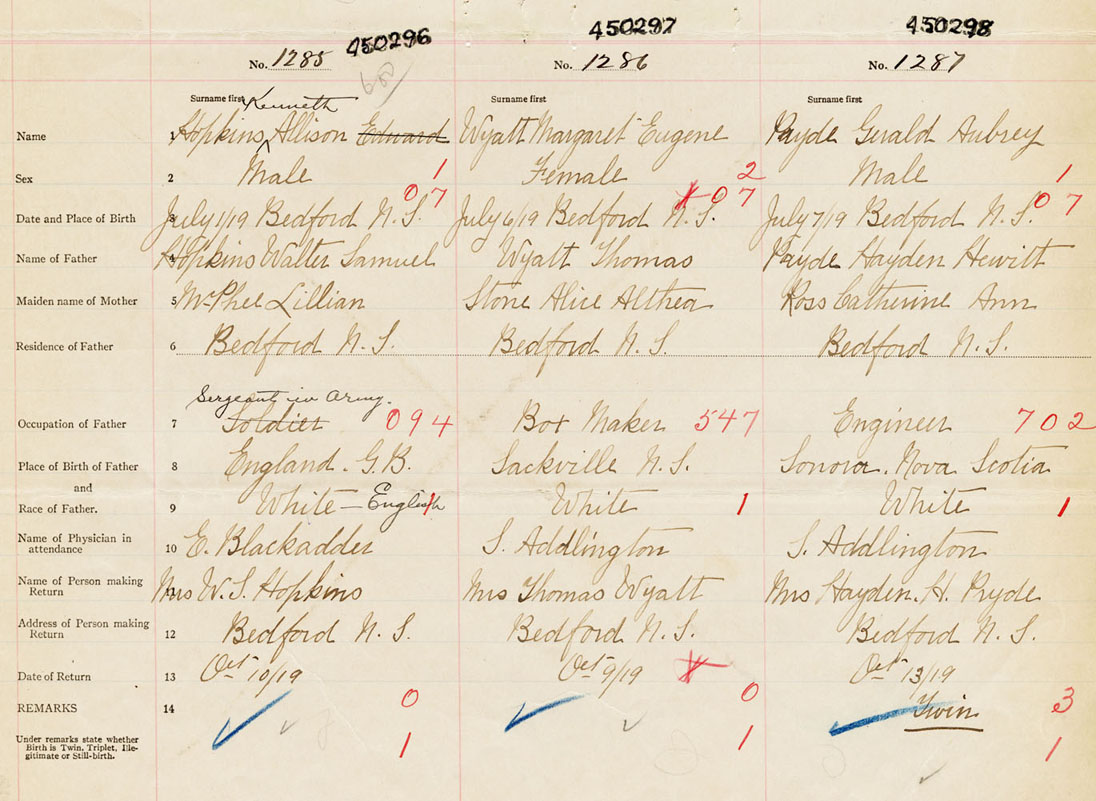 450296 450297 450298
No. 1285 No. 1286 No. 1287
600
Surname first Kenneth Surname first Surname first
Name 1 Hopkins, Allison Edward Wyatt Margaret Eugene Pryde Gerald Aubrey
Sex 2 Male 1 Female 2 Male 1
Date and Place of Birth 3 July 1/19 Bedford N.S. 07 July 6/19 Bedford N.S. 07 July 7/19 Bedford N.S. 07
Name of Father 4 Hopkins Walter Samuel Wyatt Thomas Pryde Hayden Hewitt
Maiden name of Mother 5 McPhee Lillian Stone Alice Althea Ross Catherine Ann
Residence of Father 6 Bedford N.S. Bedford N.S. Bedford N.S.
Sergeant in Army.
Occupation of Father 7 Soldier 094 Box Maker 547 Engineer 702
Place of Birth of Father 8 England. G.B. Sackville N.S. Sonora. Nova Scotia
and
Race of Father. 9 White — English 1 White 1 White 1
Name of Physician in
attendance 10 E. Blackadder S. Addlington S. Addlington
Name of Person making
Return 11 Mrs W. S. Hopkins Mrs Thomas Wyatt Mrs Hayden. H. Pryde
Address of Person making
Return 12 Bedford N.S. Bedford N.S. Bedford N.S.
Date of Return 13 Oct 10/19 Oct 9/19 Oct 13/19
REMARKS 14 0 0 Twin 3
Under remarks state whether
Birth is Twin, Triplet, Ille-
gitimate or Still-birth. 1 1 1